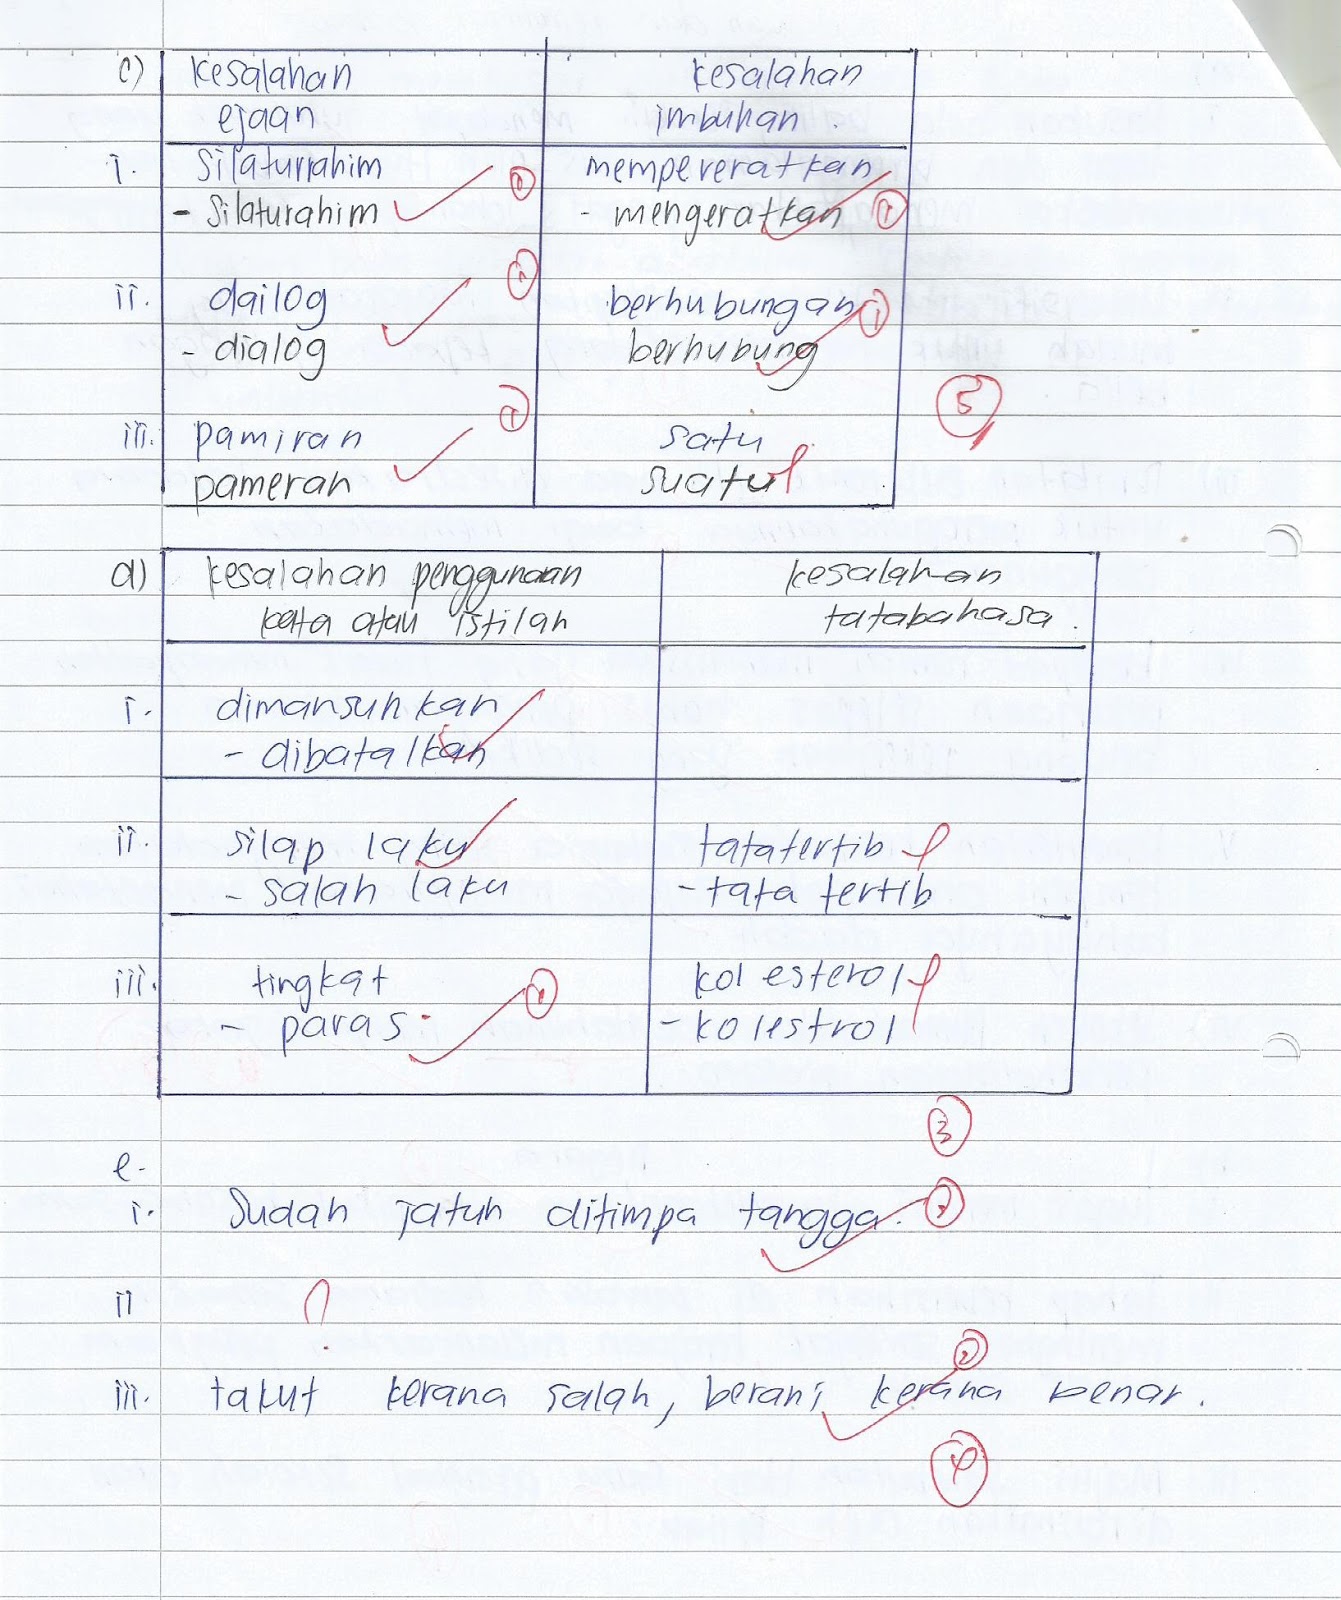 c) kesalahan ejaan kesalahan imbuhan.
i. silaturrahim mempereratkan
- silaturahim - mengeratkan
1 1
ii. dailog berhubungan
- dialog berhubung
1 1
iii. pamiran satu
pameran suatu
1
5
d) kesalahan penggunaan kata atau istilah kesalahan tatabahasa.
i. dimansuhkan
- dibatalkan
ii. silap laku tatatertib
- salah laku - tata tertib
iii. tingkat kolesterol
- paras - kolestrol
1
3
e.
i. Sudah jatuh ditimpa tangga. 2
ii
iii. takut kerana salah, berani kerana benar. 2
4